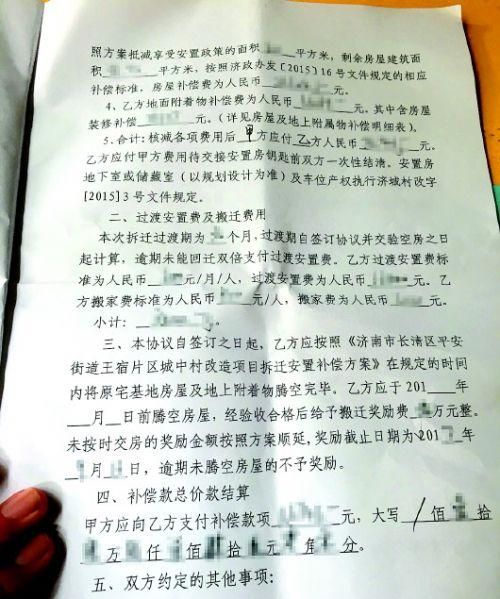 照方案抵减享受安置政策的面积 平方米，剩余房屋建筑面
积 平方米，按照济政办发[2015]16号文件规定的相应
补偿标准，房屋补偿费为人民币 元。
4、乙方地面附着物补偿费为人民币 元，其中含房屋
装修补偿 元。（详见房屋及地上附属物补偿明细表）。
5、合计：核减各项费用后 甲 方应付 乙 方人民币 元。
乙方应付甲方费用待交接安置房钥匙前双方一次性结清。安置房
地下室或储藏室（以规划设计为准）及车位产权执行济城村改字
[2015]3号文件规定。
二、过渡安置费及搬迁费用
本次拆迁过渡期为 个月，过渡期自签订协议并交验空房之日
起计算，逾期未能回迁双倍支付过渡安置费。乙方过渡安置费标
准为人民币 元/月/人，过渡安置费为人民币 元。乙
方搬家费标准为人民币 元/人，搬家费为人民币 元。
小计：
三、本协议自签订之日起，乙方应按照《济南市长清区平安
街道王宿片区城中村改造项目拆迁安置补偿方案》在规定的时间
内将原宅基地房屋及地上附着物腾空完毕。乙方应于201____年
___月__日前腾空房屋，经验收合格后给予搬迁奖励费 万元整。
未按时交房的奖励金额按照方案顺延，奖励截止日期为201 年
月 日，逾期未腾空房屋的不予奖励。
四、补偿款总价款结算
甲方应向乙方支付补偿款项 元，大写 / 佰 拾
万 仟 佰 拾 元 角 分。
五、双方约定的其他事项：